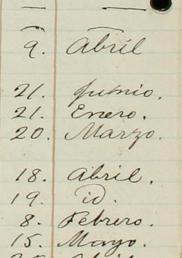 9. Abril
21. Junio.
21. Enero.
20. Marzo.
18. Abril.
19. id.
8. Febrero.
15. Mayo.